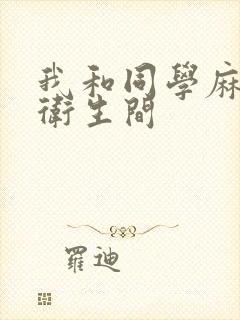 我和同學麻
衛生間
羅迪